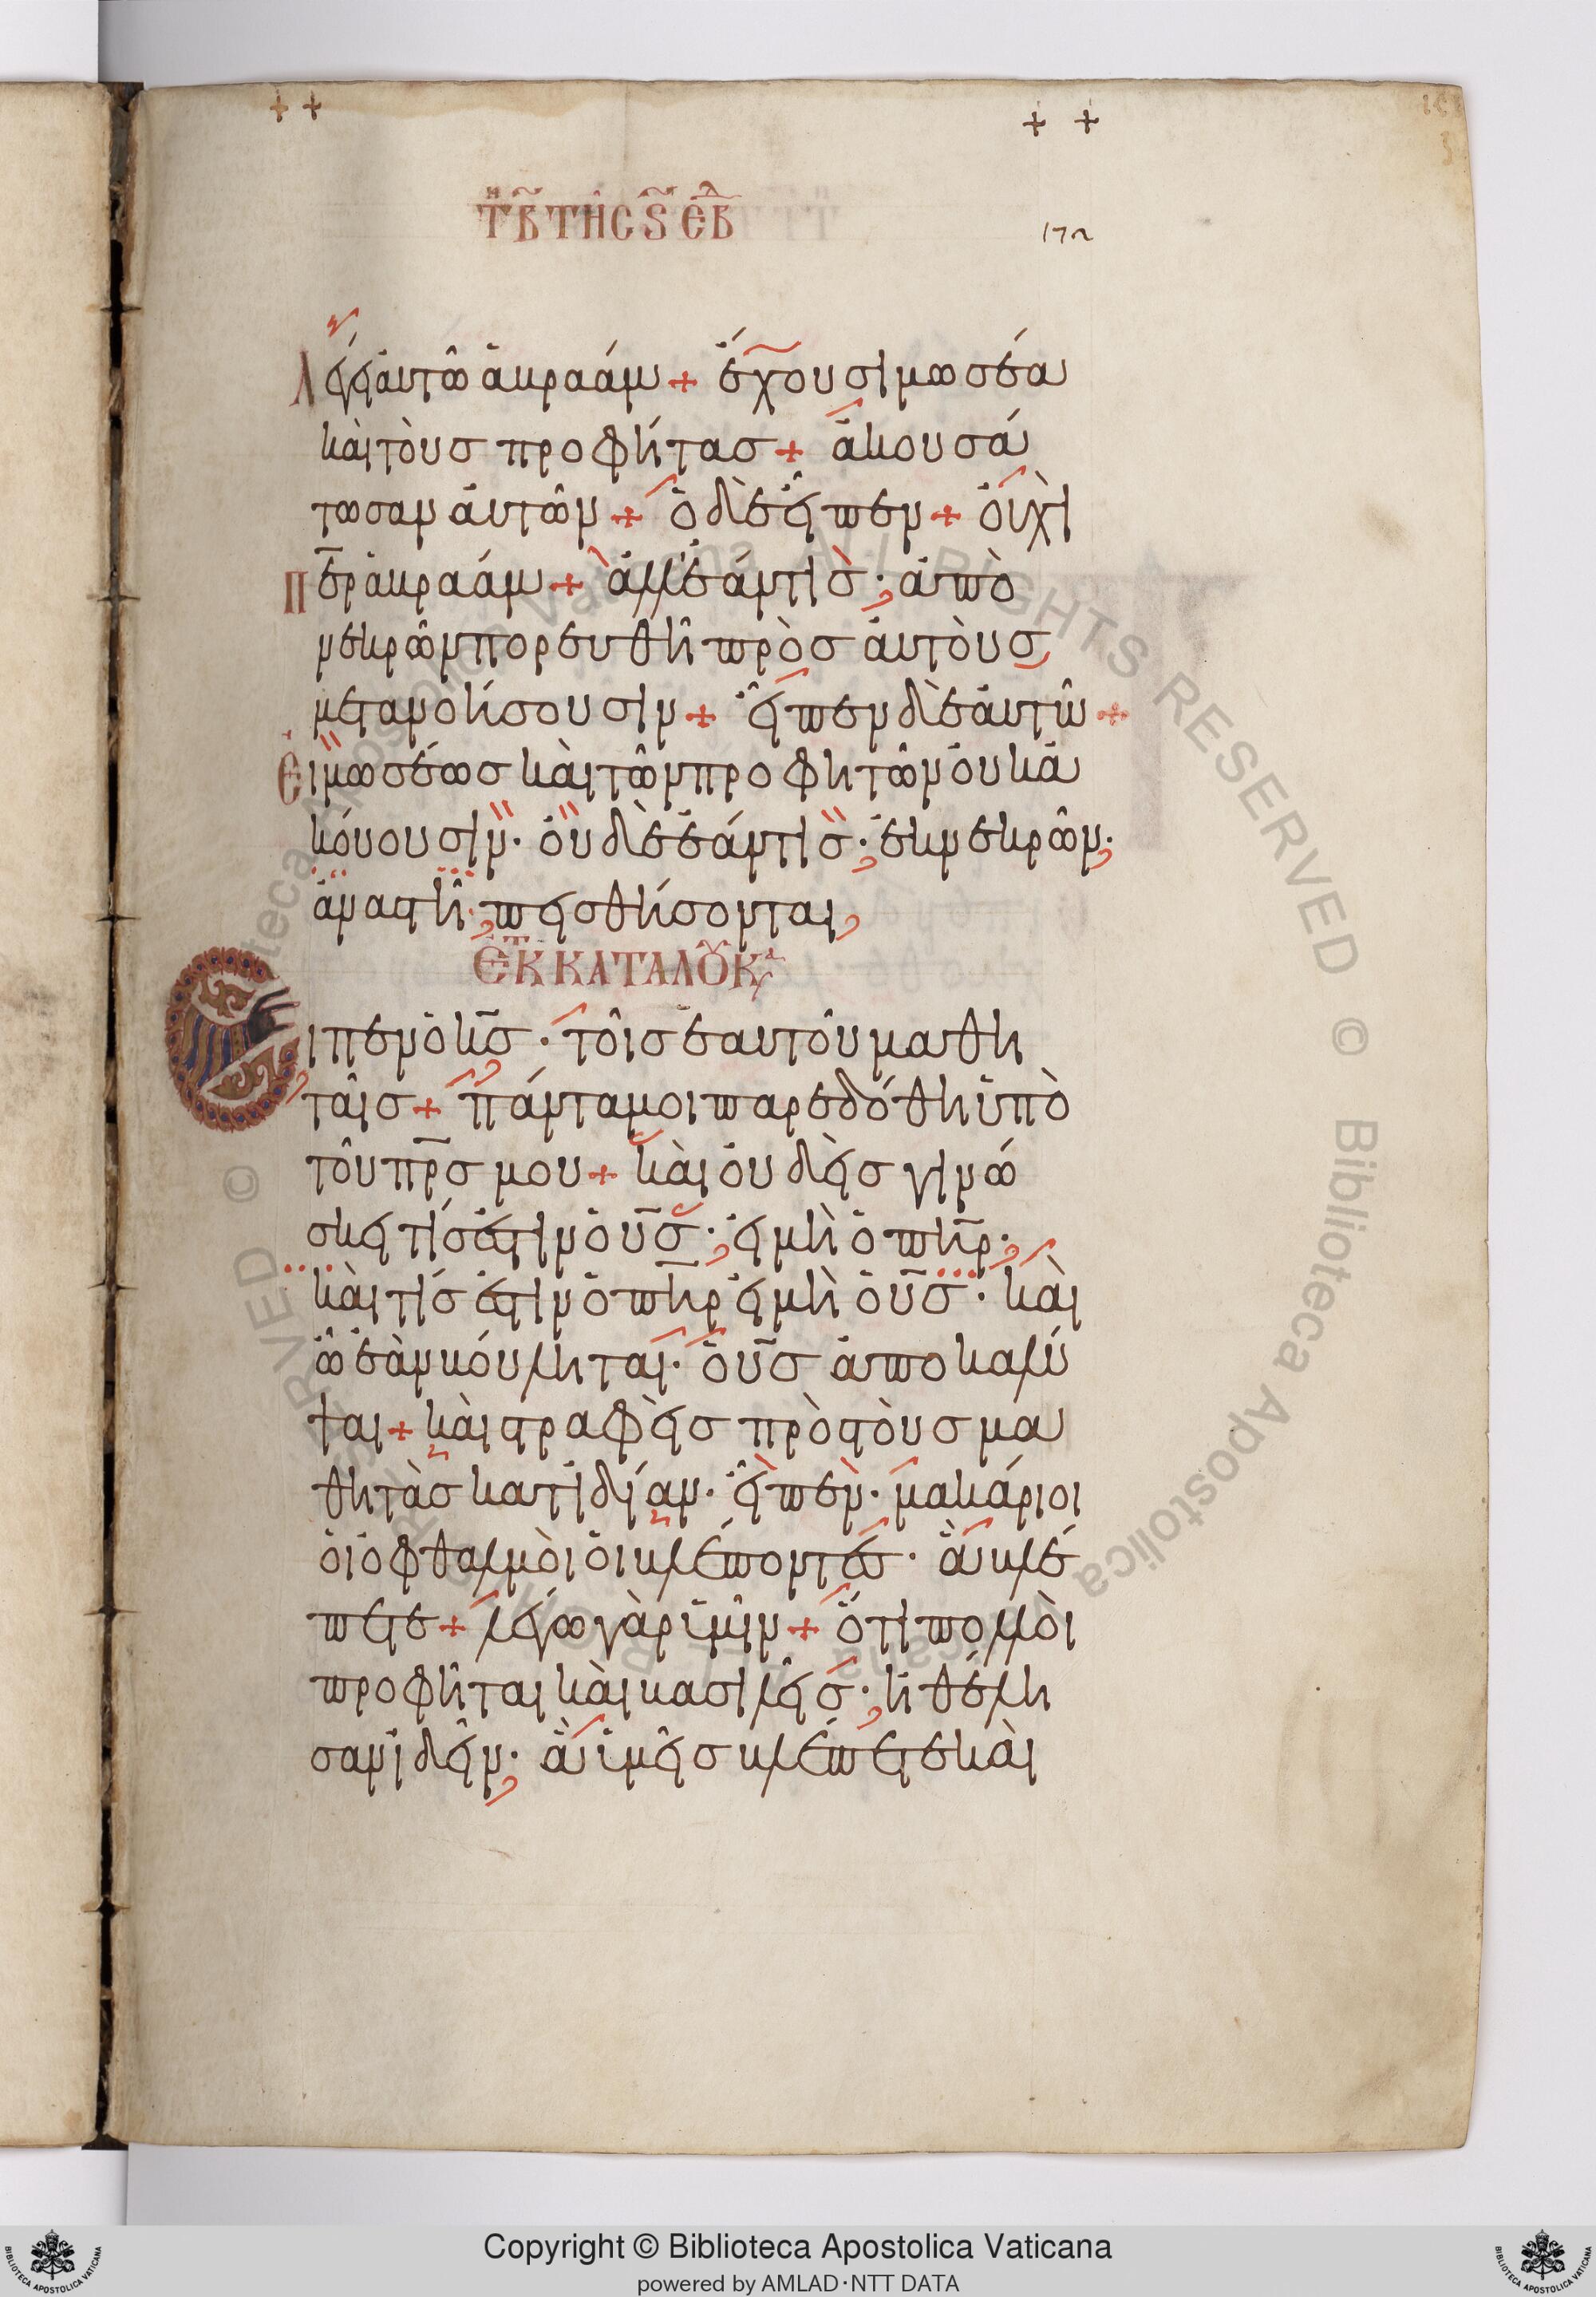 ++ ++
Τῆ Β τῆς ϛ ἑβδ
172
Λέγει αὐτῶ ἀβραάμ + ἔχουσι μωσέα
καὶ τοὺς προφήτας + ἀκουσά
τωσαν αὐτῶν + ὁ δὲ εἶπεν + οὐχὶ
περ ἀβραάμ + ἀλλ' ἐάν τις · ἀπὸ
νεκρῶν πορευθῆ πρὸς αὐτοὺς
μετανοήσουσιν + εἶπεν δὲ αὐτῶ +
Εἰ μωσέως καὶ τῶν προφητῶν οὐκ ἀ
κούουσιν · οὐδὲ ἐάν τις · ἐκ νεκρῶν ·
ἀναστῆ · πεισθήσονται
ἐκ τ κατὰ λουκ
Εἶπεν ὁ κς · τοῖς ἑαυτοῦ μαθη
ταῖς + πάντα μοι παρεδόθη ὑπὸ
τοῦ πρς μου + καὶ οὐδεὶς γινώ
σκει τίς ἐστιν ὁ υς · εἰ μὴ ὁ πηρ ·
καὶ τίς ἐστιν ὁ πηρ εἰ μὴ ὁ υς · καὶ
ὧ ἐὰν βούληται · ὁ υς ἀποκαλύ
ψαι + καὶ στραφεὶς πρὸς τοὺς μα
θητὰς κατ ἰδίαν · εἶπεν · μακάριοι
οἱ ὀφθαλμοὶ οἱ βλέποντες · ἃ βλέ
πετε + λέγω γὰρ ὑμῖν + ὅτι πολλοὶ
προφῆται καὶ βασιλεῖς · ἠθέλη
σαν ἰδεῖν · ἃ ὑμεῖς βλέπετε καὶ
© Biblioteca Apostolica Vaticana ALL RIGHTS RESERVED
Copyright © Biblioteca Apostolica Vaticana
powered by AMLAD·NTT DATA
BIBLIOTECA APOSTOLICA VATICANA
BIBLIOTECA APOSTOLICA VATICANA